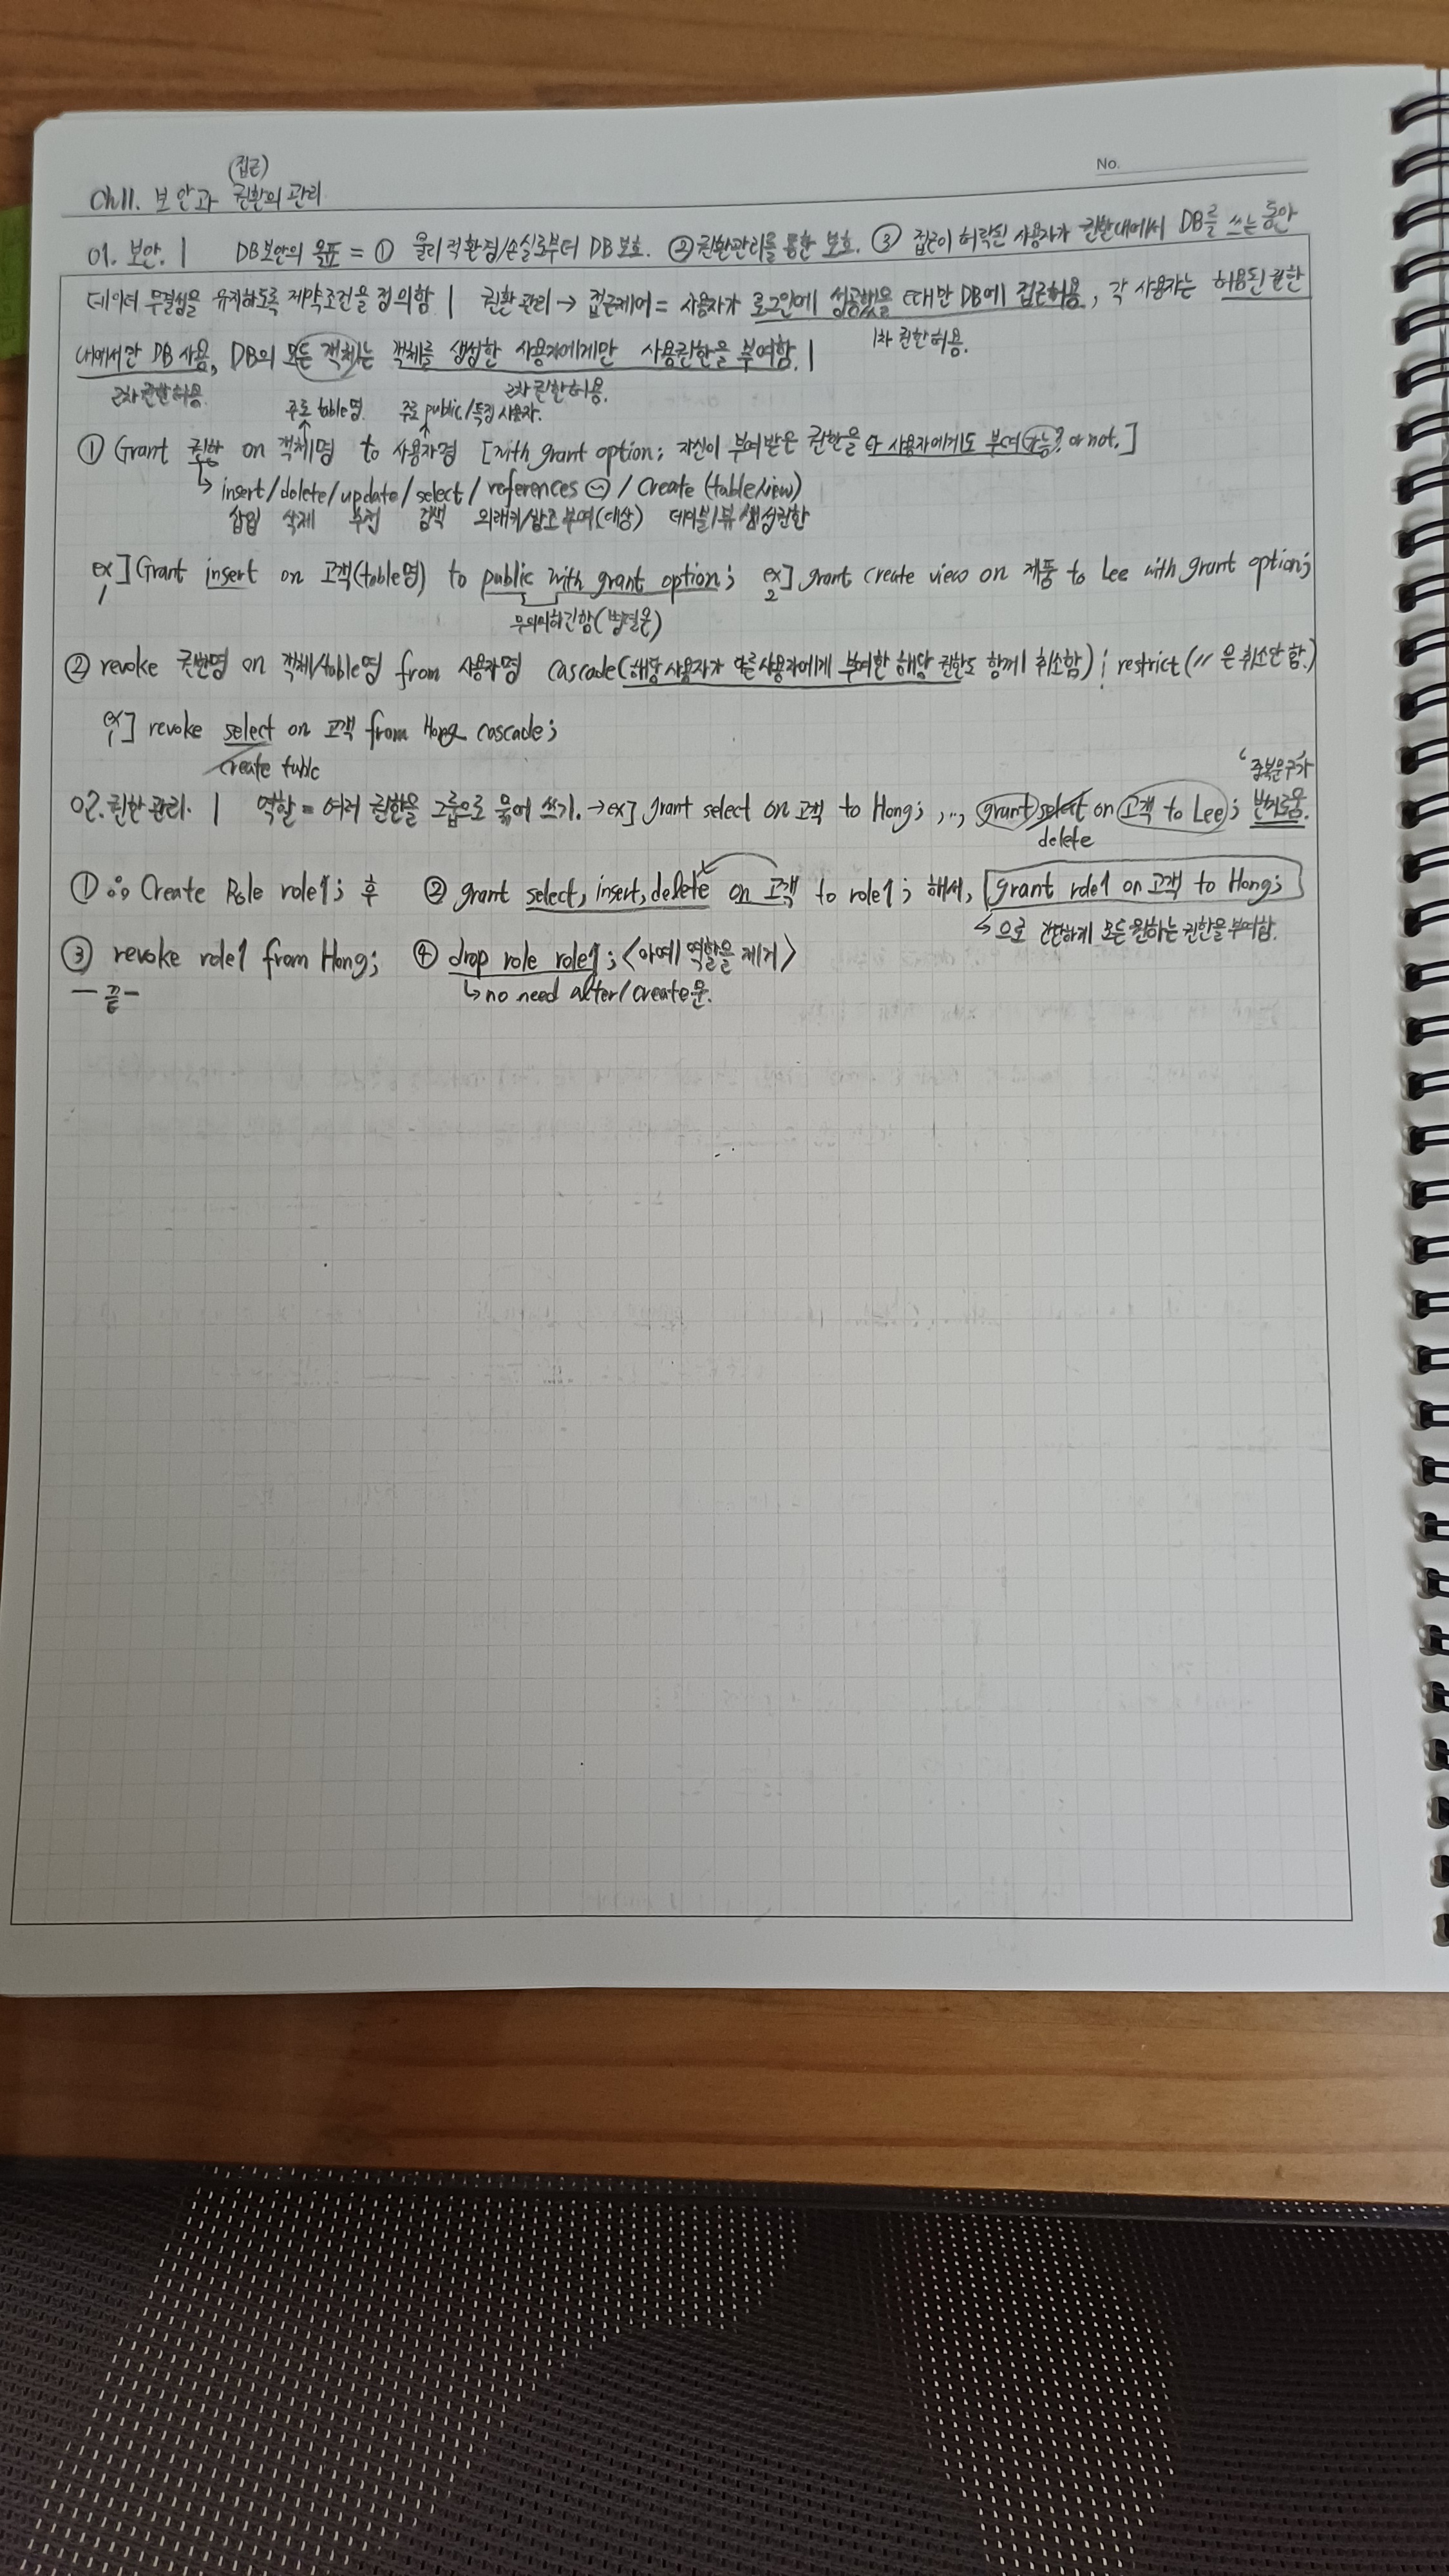 (접근)
No.
Ch11. 보안과 권한의 관리
01. 보안. | DB보안의 목표 = ① 물리적환경/손실로부터 DB 보호. ②권한관리를 통한 보호. ③ 접근이 허락된 사용자가 권한내에서 DB를 쓰는 동안
데이터 무결성을 유지하도록 제약조건을 정의함 | 권한 관리 → 접근제어 = 사용자가 로그인에 성공했을 때만 DB에 접근허용, 각 사용자는 허용된 권한
1차 권한허용.
내에서만 DB 사용, DB의 모든 객체는 객체를 생성한 사용자에게만 사용권한을 부여함. |
2차권한허용. 2차 권한허용.
주로 table명. 주로 public/특정 사용자.
① Grant 권한 on 객체명 to 사용자명 [with grant option; 자신이 부여받은 권한을 타 사용자에게도 부여 가능? or not.]
↳ insert/delete/update/select/references / Create (table/view)
삽입 삭제 수정 검색 외래키/참조 부여(대상) 테이블/뷰 생성권한
ex1] Grant insert on 고객(table명) to public with grant option; ex2] grant create view on 제품 to Lee with grant option;
무의미하긴함
② revoke 권한명 on 객체/table명 from 사용자명 cascade(해당 사용자가 다른사용자에게 부여한 해당 권한도 함께 취소함) | restrict (〃은 취소안 함.)
ex1] revoke select on 고객 from Hong cascade;
create table
‘중복문구가
02. 권한 관리. | 역할 = 여러 권한을 그룹으로 묶어 쓰기. → ex] grant select on 고객 to Hong; , .., grant select on 고객 to Lee; 번거로움.
delete
① ∴ Create Role role1; 후 ② grant select, insert, delete on 고객 to role1; 해서, [grant role1 on 고객 to Hong;]
↳으로 간단하게 모든 원하는 권한을 부여함.
③ revoke role1 from Hong; ④ drop role role1; <아예 역할을 제거>
— 끝 — ↳ no need alter/create문.